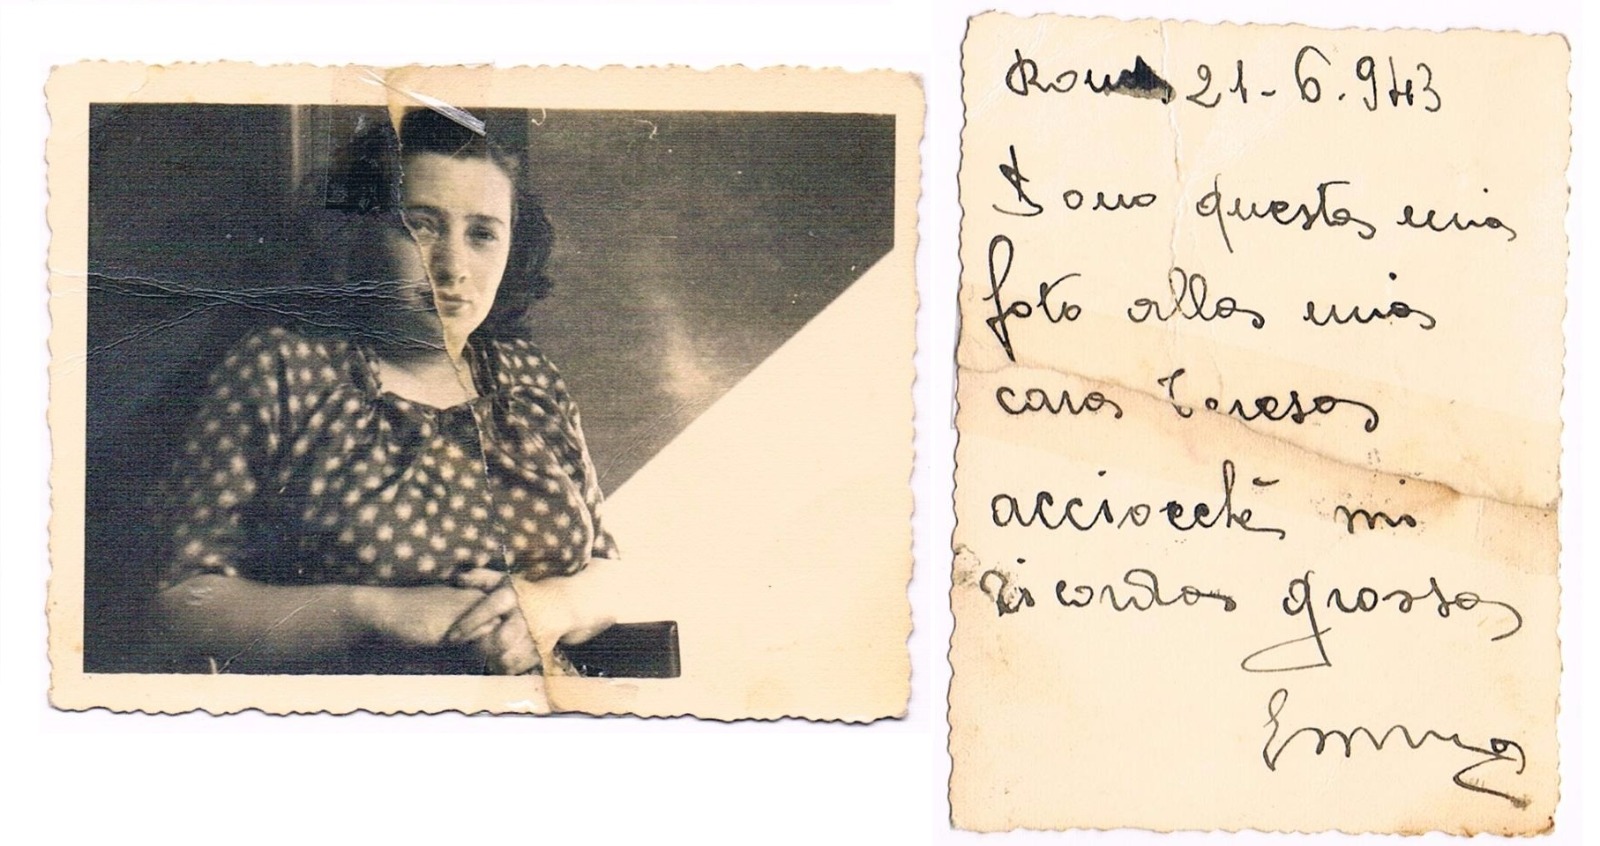 Roma 21-6.943
Dono questa mia
foto alla mia
cara Teresa
acciocchè mi
ricorda grossa
Emma